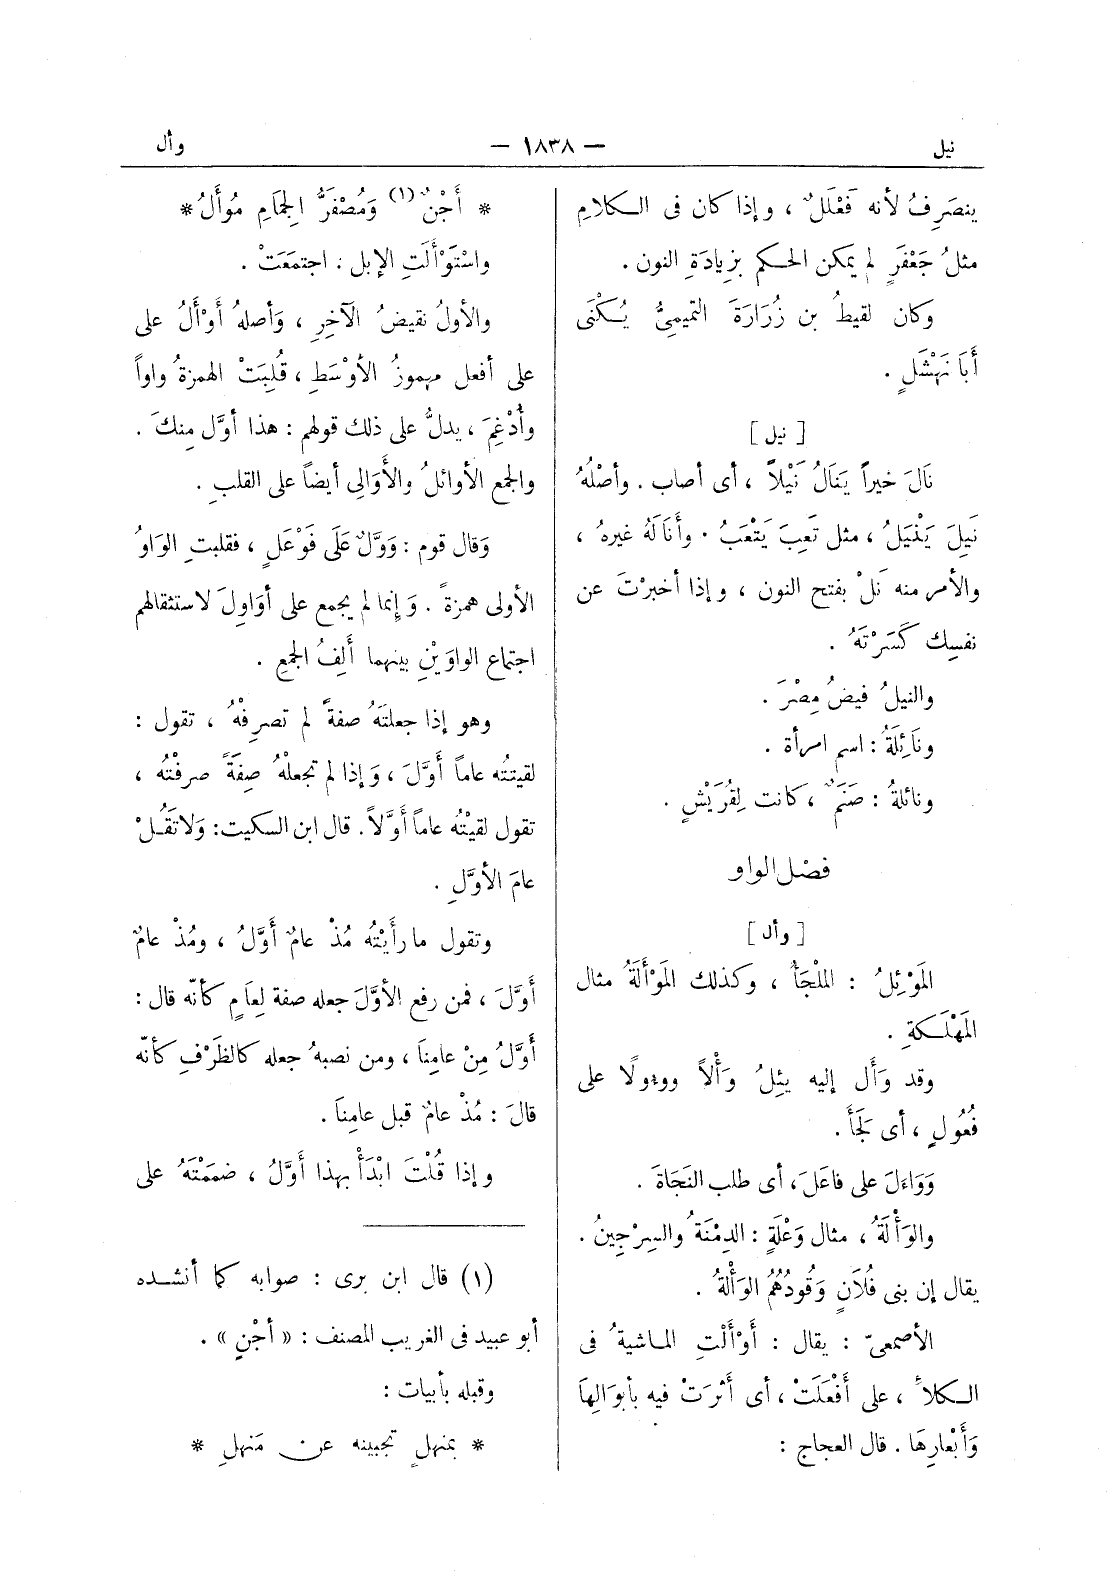 نيل
— ١٨٣٨ —
وأل
ينصَرِفُ لأنه فَعْلَلٌ ، وإذا كان فى الكلامِ
مثلُ جَعْفَرٍ لم يمكن الحكم بزِيادَةِ النون .
وكان لقيطُ بن زُرَارَةَ التميمىُّ يُكْنَى
أَبَا نَهْشَلٍ .
[ نيل ]
نَالَ خيراً يَنَالُ نَيْلاً ، أى أصاب . وأصْلُهُ
نَيِلَ يَنْيَلُ ، مثل تَعِبَ يَتْعَبُ . وأَنَالَهُ غيرهُ ،
والأمر منه نَلْ بفتح النون ، وإذا أخبرْتَ عن
نفسِك كَسَرْتَهُ .
والنيلُ فيضُ مِصْرَ .
ونَائِلَةُ : اسم امرأة .
ونائلةُ : صَنَمٌ ، كانت لِقُرَيْشٍ .
فصْل الواو
[ وأل ]
المَوْئِلُ : الملْجَأُ ، وكذلك المَوْأَلَةُ مثال
المَهْلَكةِ .
وقد وَأَل إليه يئِلُ وَأْلاً ووءولًا على
فُعُولٍ ، أى لجَأَ .
وَوَاءَلَ على فاعَلَ، أى طلب النَجَاةَ .
والوَأْلَةُ ، مثال وَعْلَةٍ : الدِمْنَةُ والسِرْجِينُ .
يقال إن بنى فُلَانٍ وَقُودُهُمُ الوَأْلةُ .
الأصمعىّ : يقال : أَوْأَلَتِ الماشيةُ فى
الكلأ ، على أَفْعَلَتْ ، أى أثرَتْ فيه بأبوَالِهَا
وَأَبْعارِهَا . قال العجاج :
* أَجْنٌ (١) وَمُصْفَرُّ الجِمَامِ مُوأَلُ *
واسْتَوْأَلَتِ الإبل : اجتمَعَتْ .
والأولُ نقيضُ الآخِرِ ، وَأصلهُ أَوْأَلُ على
على أفعل مهموزُ الأوْسَطِ ، قُلِبَتْ الهمزةُ واواً
وأُدْغِمَ ، يدلُّ على ذلك قولهم : هذا أوَّل مِنكَ .
والجمع الأوائلُ والأَوَالِى أيضاً على القلبِ .
وَقال قوم : وَوَّلٌ عَلَى فَوْعَلٍ ، فقلبتِ الوَاوُ
الأولى همزةً . وَإنما لم يجمع على أوَاوِلَ لاستثقالهم
اجتماع الواوَيْنِ بينهما أَلِفُ الجمعِ .
وهو إذا جعلتَهُ صفةً لم تصرِفْهُ ، تقول :
لقيتُه عاماً أَوَّلَ ، وَإذا لم تجعلْهُ صِفَةً صرفْتُه ،
تقول لقيتُه عاماً أَوَّلاً. قال ابن السكيت: وَلا تَقُلْ
عامَ الأوَّلِ .
وتقول ما رأَيْتُه مُذْ عامٌ أَوَّلُ ، ومُذْ عامٌ
أَوَّلَ ، فمن رفع الأوَّلَ جعله صفة لِعَامٍ كأنّه قال :
أَوَّلُ مِنْ عامِنَا ، ومن نصبهُ جعله كالظَرْفِ كأنّه
قالَ : مُذْ عامٌ قبل عامِنَا .
وإذا قُلْتَ ابْدَأْ بهذا أَوَّلُ ، ضممْتَهُ على
(١) قال ابن برى : صوابه كما أنشده
أبو عبيد فى الغريب المصنف : « أجْنٍ » .
وقبله بأبيات :
* بمنهلٍ تجبينه عن مَنهلِ *